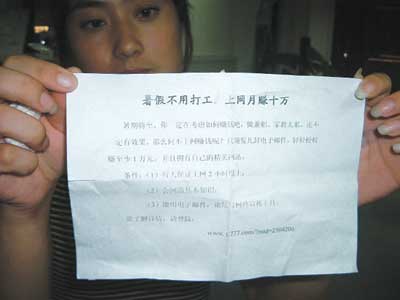 暑假不用打工，上网月赚十万
暑期将至，你一定在考虑如何赚钱吧，做兼职、家教太累，还不
定有效果，那么何不上网赚钱呢？只须发几封电子邮件，好好
赚至少1万元，并且拥有自己的精美网站。
条件：（1）每天保证上网2小时以上。
（2）会网络基本知识。
（3）能用电子邮件，
欲了解详情，请登陆：